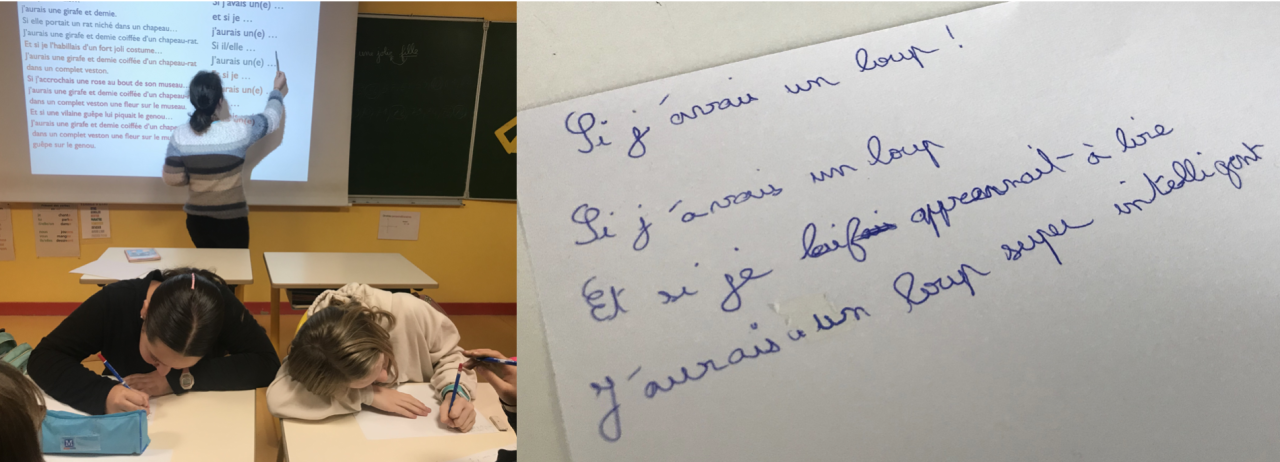 j'aurais une girafe et demie.
Si elle portait un rat niché dans un chapeau…
J'aurais une girafe et demie coiffée d'un chapeau-rat.
Et si je l'habillais d'un fort joli costume…
J'aurais une girafe et demie coiffée d'un chapeau-rat
dans un complet veston.
Si j'accrochais une rose au bout de son museau…
J'aurais une girafe et demie coiffée d'un chapeau-
dans un complet veston une fleur sur le museau.
Et si une vilaine guêpe lui piquait le genou…
J'aurais une girafe et demie coiffée d'un chape
dans un complet veston une fleur sur le mu
guêpe sur le genou.
Si j'avais un(e) …
et si je …
j'aurais un(e) …
Si il/elle …
J'aurais un(e) …
si je …
rais un(e)
Si j'avais un loup !
Si j'avais un loup
Et si je apprennait à lire
J'aurais un loup super intelligent